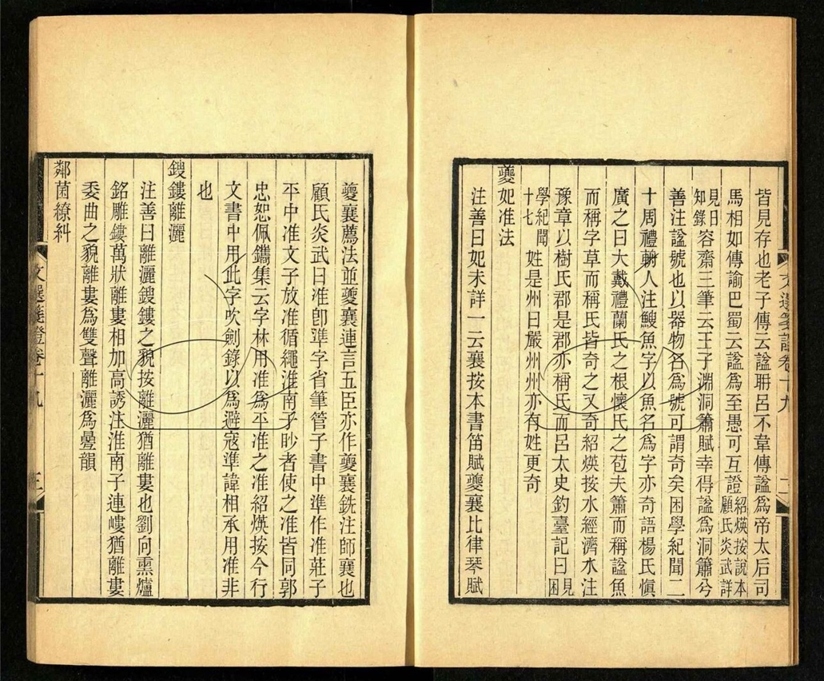 皆見存也老子傳云諡聃呂不韋傳諡爲帝太后司
馬相如傳諭巴蜀云諡爲至愚可互證紹煐按說本顧氏炎武詳
見日知錄容齋三筆云王子淵洞簫賦幸得諡爲洞簫兮
善注諡號也以器物名爲號可謂奇矣困學紀聞二
十周禮䱷人注鰻魚字以魚名爲字亦奇語楊氏愼
廣之曰大戴禮蘭氏之根懷氏之苞夫簫而稱諡魚
而稱字草而稱氏皆奇之又奇紹煐按水經濟水注
豫章以樹氏郡是郡亦稱氏而呂太史釣臺記曰見困
學紀聞十七姓是州曰嚴州州亦有姓更奇
夔妃准法
注善曰妃未詳一云襄按本書笛賦夔襄比律琴賦
文選箋證卷十九
二
夔襄薦法並夔襄連言五臣亦作夔襄銑注師襄也
顧氏炎武曰准卽準字省筆管子書中準作准莊子
平中准文子放准循繩淮南子眇者使之准皆同郭
忠恕佩觿集云字林用准爲平准之准紹煐按今行
文書中用此字吹劍錄以爲避寇準諱相承用准非
也
鎪鏤離灑
注善曰離灑鎪鏤之貌按離灑猶離婁也劉向熏爐
銘雕鏤萬狀離婁相加高誘注淮南子連嶁猶離婁
委曲之貌離婁爲雙聲離灑爲曡韻
鄰菌繚糾
文選箋證卷十九
三